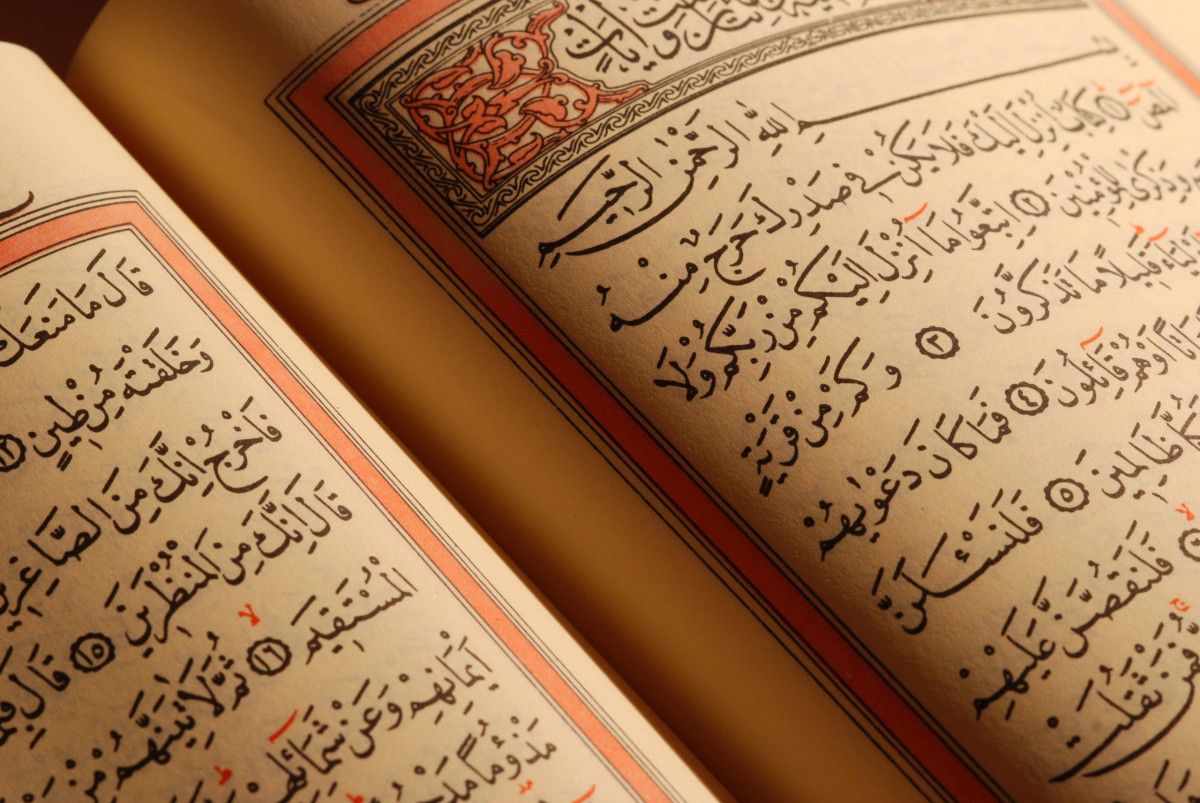 بِسْمِ اللّٰهِ الرَّحْمٰنِ الرَّحِيمِ
الٓمٓصٓ ١ كِتَابٌ اُنْزِلَ اِلَيْكَ فَلَا يَكُنْ فِي صَدْرِكَ حَرَجٌ مِنْهُ
وَذِكْرٰى لِلْمُؤْمِنِينَ ٢ اِتَّبِعُوا مَٓا اُنْزِلَ اِلَيْكُمْ مِنْ رَبِّكُمْ وَلَا
قَلِيلًا مَا تَذَكَّرُونَ ٣ وَكَمْ مِنْ قَرْيَةٍ
اَوْ هُمْ قَٓائِلُونَ ٤ فَمَا كَانَ دَعْوٰيهُمْ
ظَالِمِينَ ٥ فَلَنَسْـَٔلَنَّ
فَلَنَقُصَّنَّ عَلَيْهِمْ
فَمَنْ ثَقُلَتْ
قَالَ مَا مَنَعَكَ
وَخَلَقْتَهُ مِنْ طِينٍ ١٢
فَاخْرُجْ اِنَّكَ مِنَ الصَّاغِرِينَ
قَالَ اِنَّكَ مِنَ الْمُنْظَرِينَ ١٥ قَالَ فَبِمَا
الْمُسْتَقِيمَ ١٦ ثُمَّ لَاٰتِيَنَّهُمْ مِنْ
اَيْمَانِهِمْ وَعَنْ شَمَٓائِلِهِمْ
مَذْؤُمًا